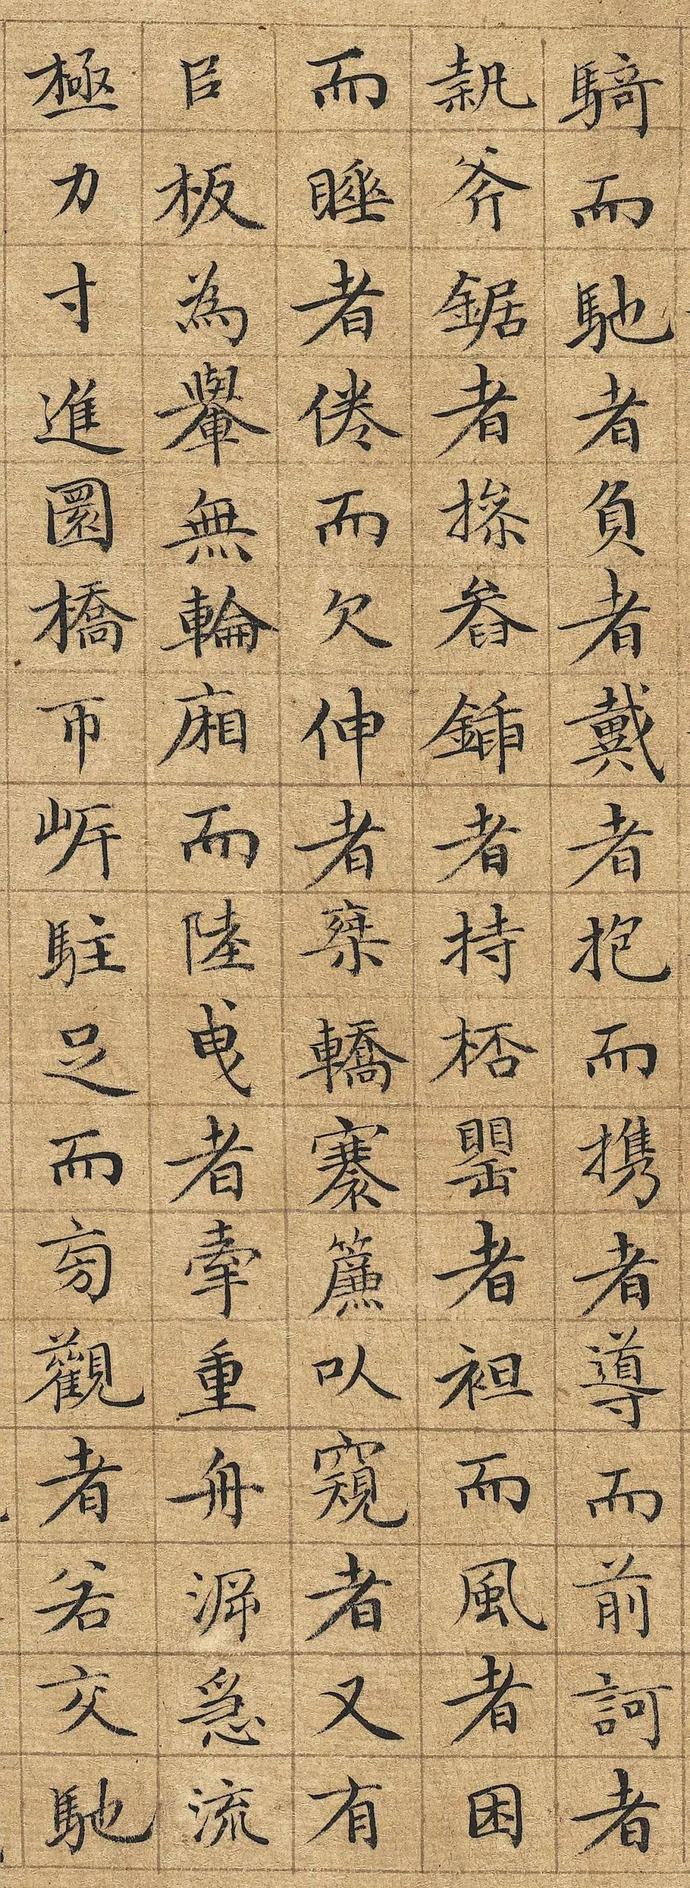 騎而馳者負者戴者抱而携者導而前訶者
執斧鋸者操畚鍤者持桮罌者袒而風者困
而睡者倦而欠伸者乗轎褰簾以窺者又有
以板為轝無輪廂而陸曳者牽重舟泝急流
極力寸進圜橋帀岸駐足而旁觀者若交馳